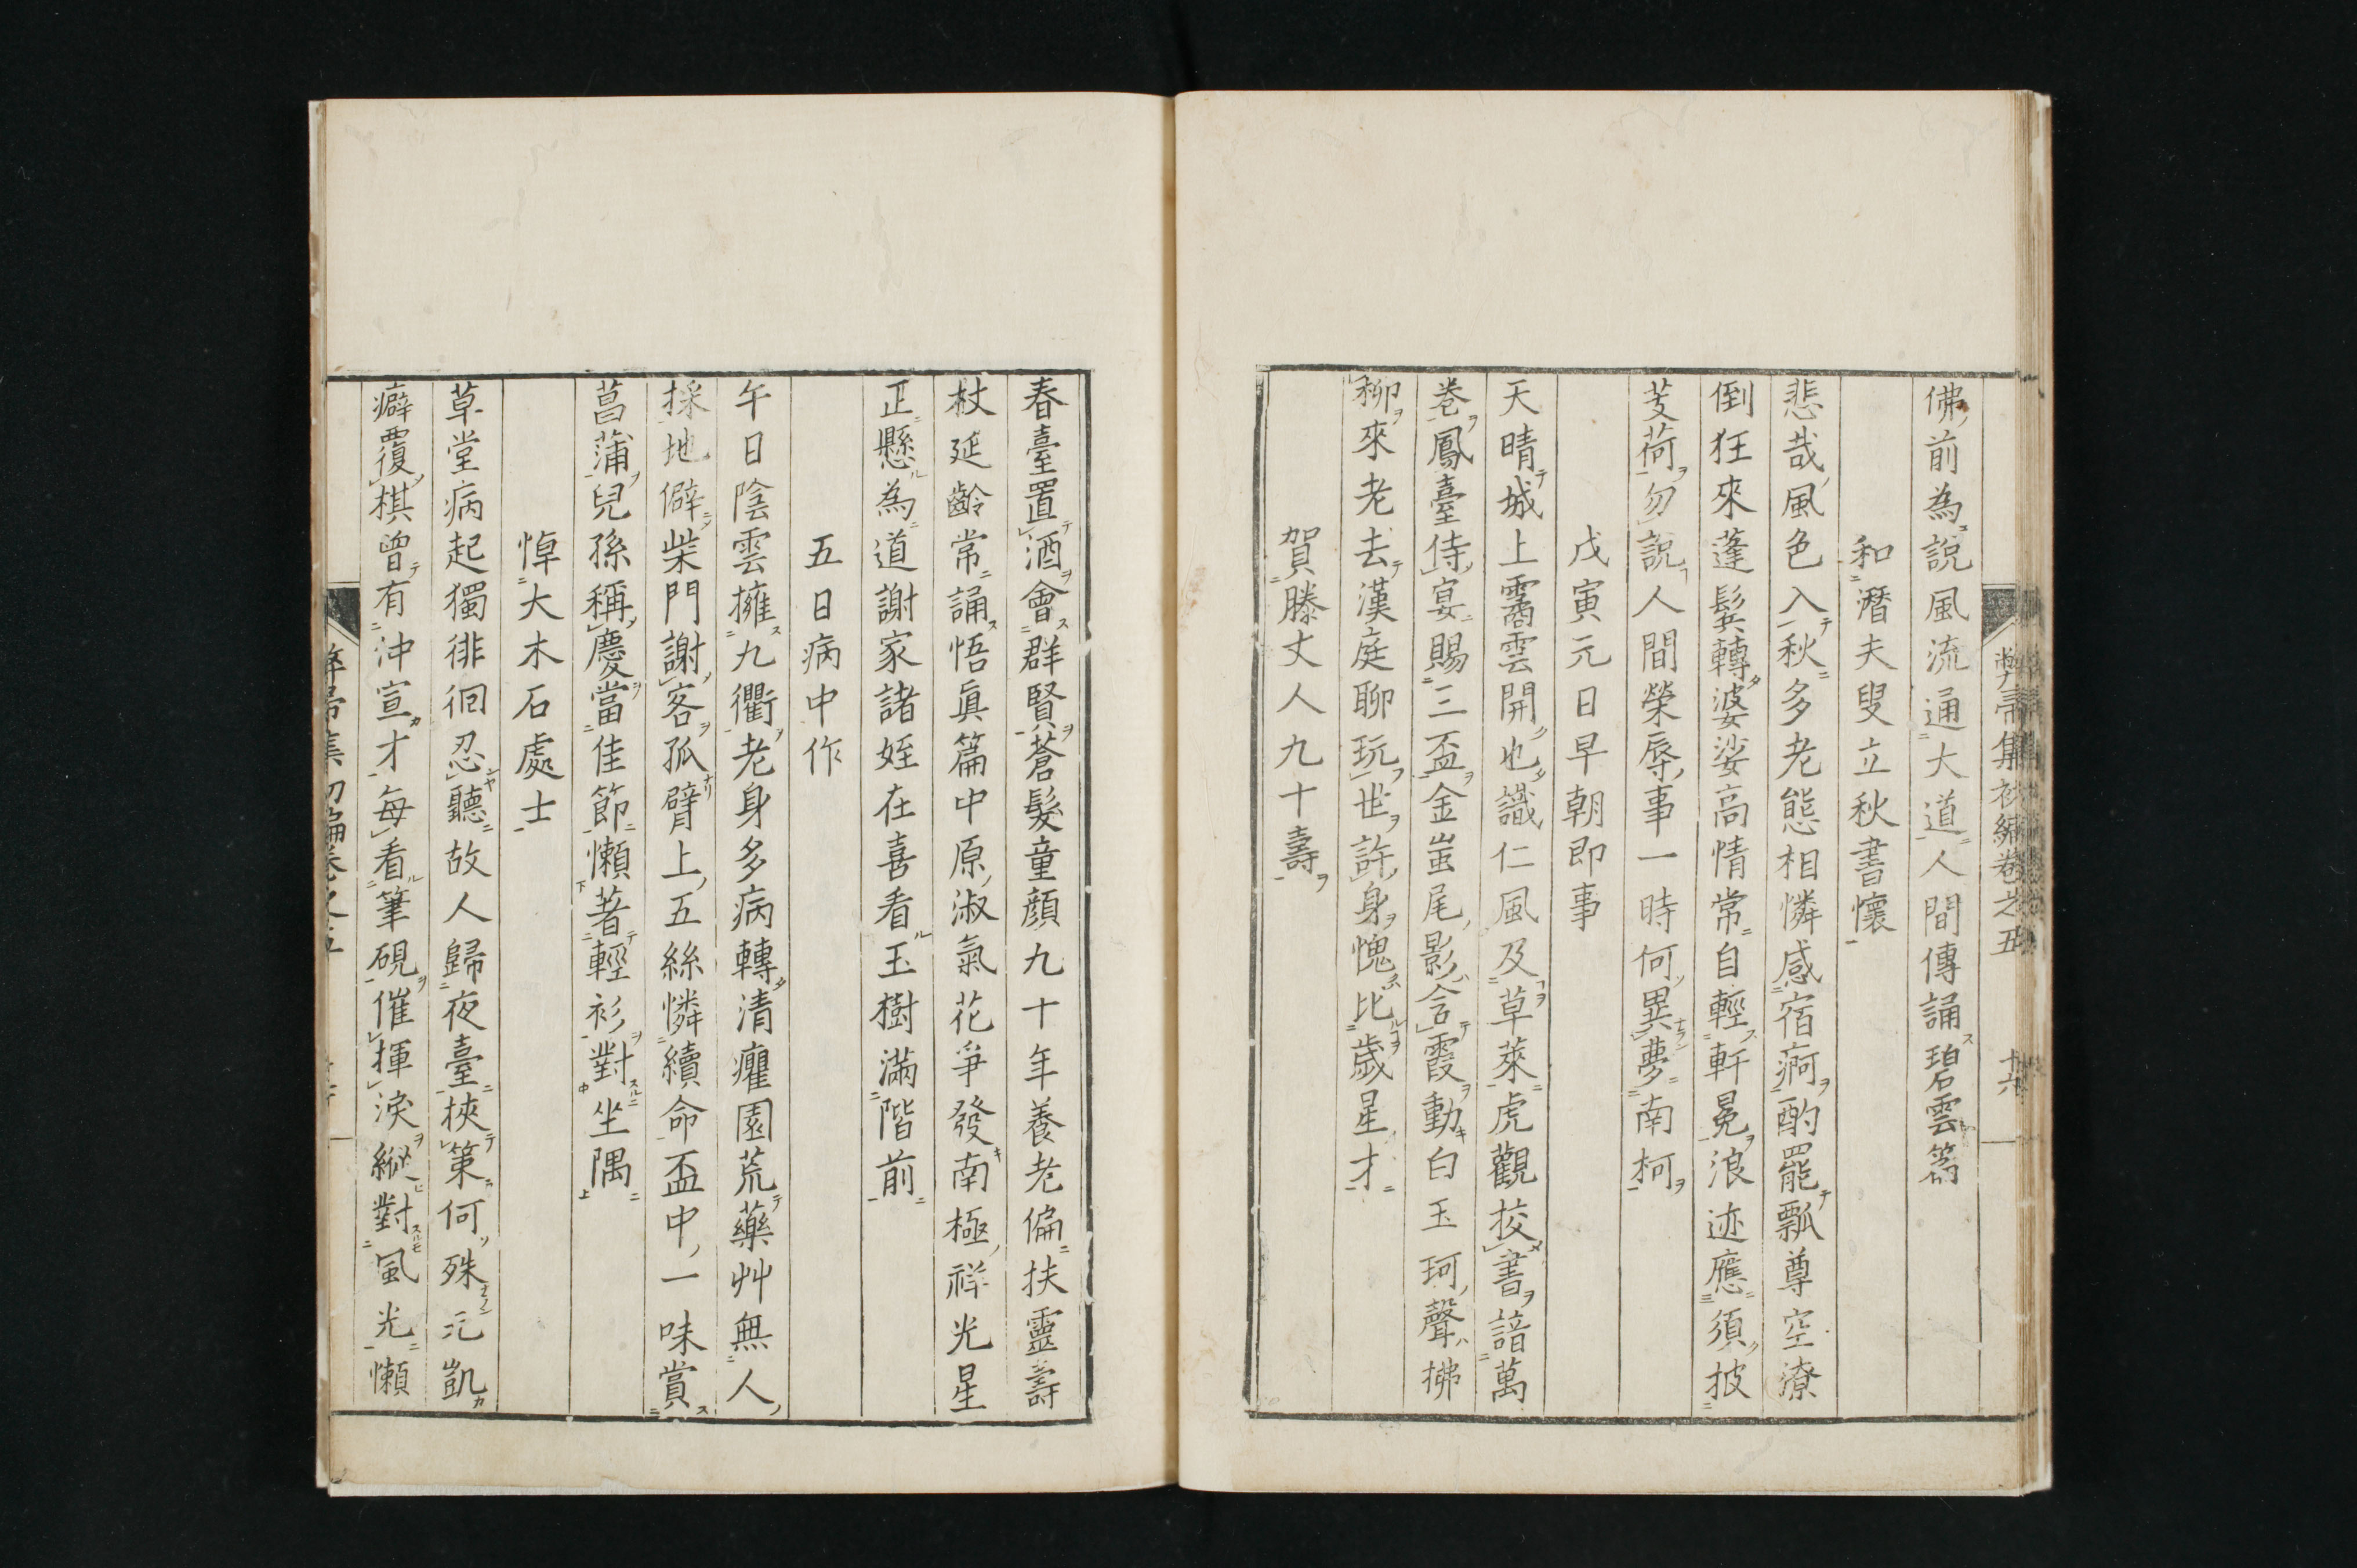 佛前為說風流通大道人間傳誦碧雲篇
和潛夫叟立秋書懷
悲哉風色入秋多老態相憐感宿痾酌罷瓢尊空潦
倒狂來蓬鬂轉婆娑高情常自輕軒冕浪迹應須披
芰荷勿說人間榮辱事一時何異夢南柯
戊寅元日早朝即事
天晴城上靄雲開也識仁風及草萊虎觀挍書諳萬
卷鳳臺侍宴賜三盃金蚩尾影含霞動白玉珂聲拂
柳來老去漢庭聊玩世許身愧比歲星才
賀滕丈人九十壽
春臺置酒會群賢蒼髮童顏九十年養老偏扶靈壽
杖延齡常誦悟眞篇中原淑氣花爭發南極祥光星
正懸為道謝家諸姪在喜看玉樹滿階前
五日病中作
午日陰雲擁九衢老身多病轉清癯園荒藥艸無人
採地僻柴門謝客孤臂上五絲憐續命盃中一味賞
菖蒲兒孫稱慶當佳節懶著輕衫對坐隅
悼大木石處士
草堂病起獨徘徊忍聽故人歸夜臺挾策何殊元凱
癖覆棋曾有沖宣才每看筆硯催揮淚縱對風光懶